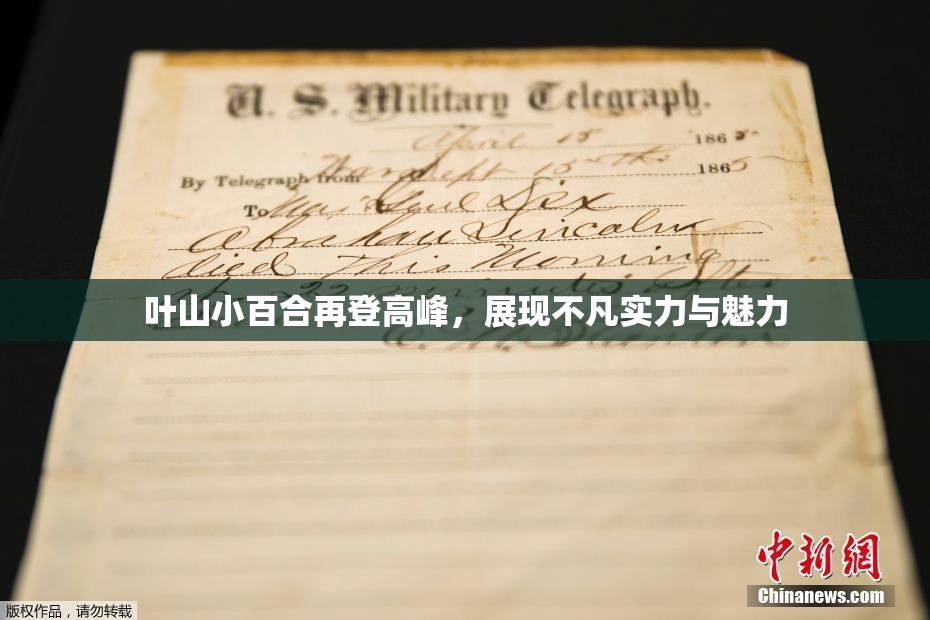 U. S. Military Telegraph.
April 15 1865
By Telegraph from War Dept 15th 1865
To Maj Genl Dix
Abraham Lincoln
died This Morning
22 minutes after
叶山小百合再登高峰，展现不凡实力与魅力
中新網
Chinanews.com
版权作品，请勿转载